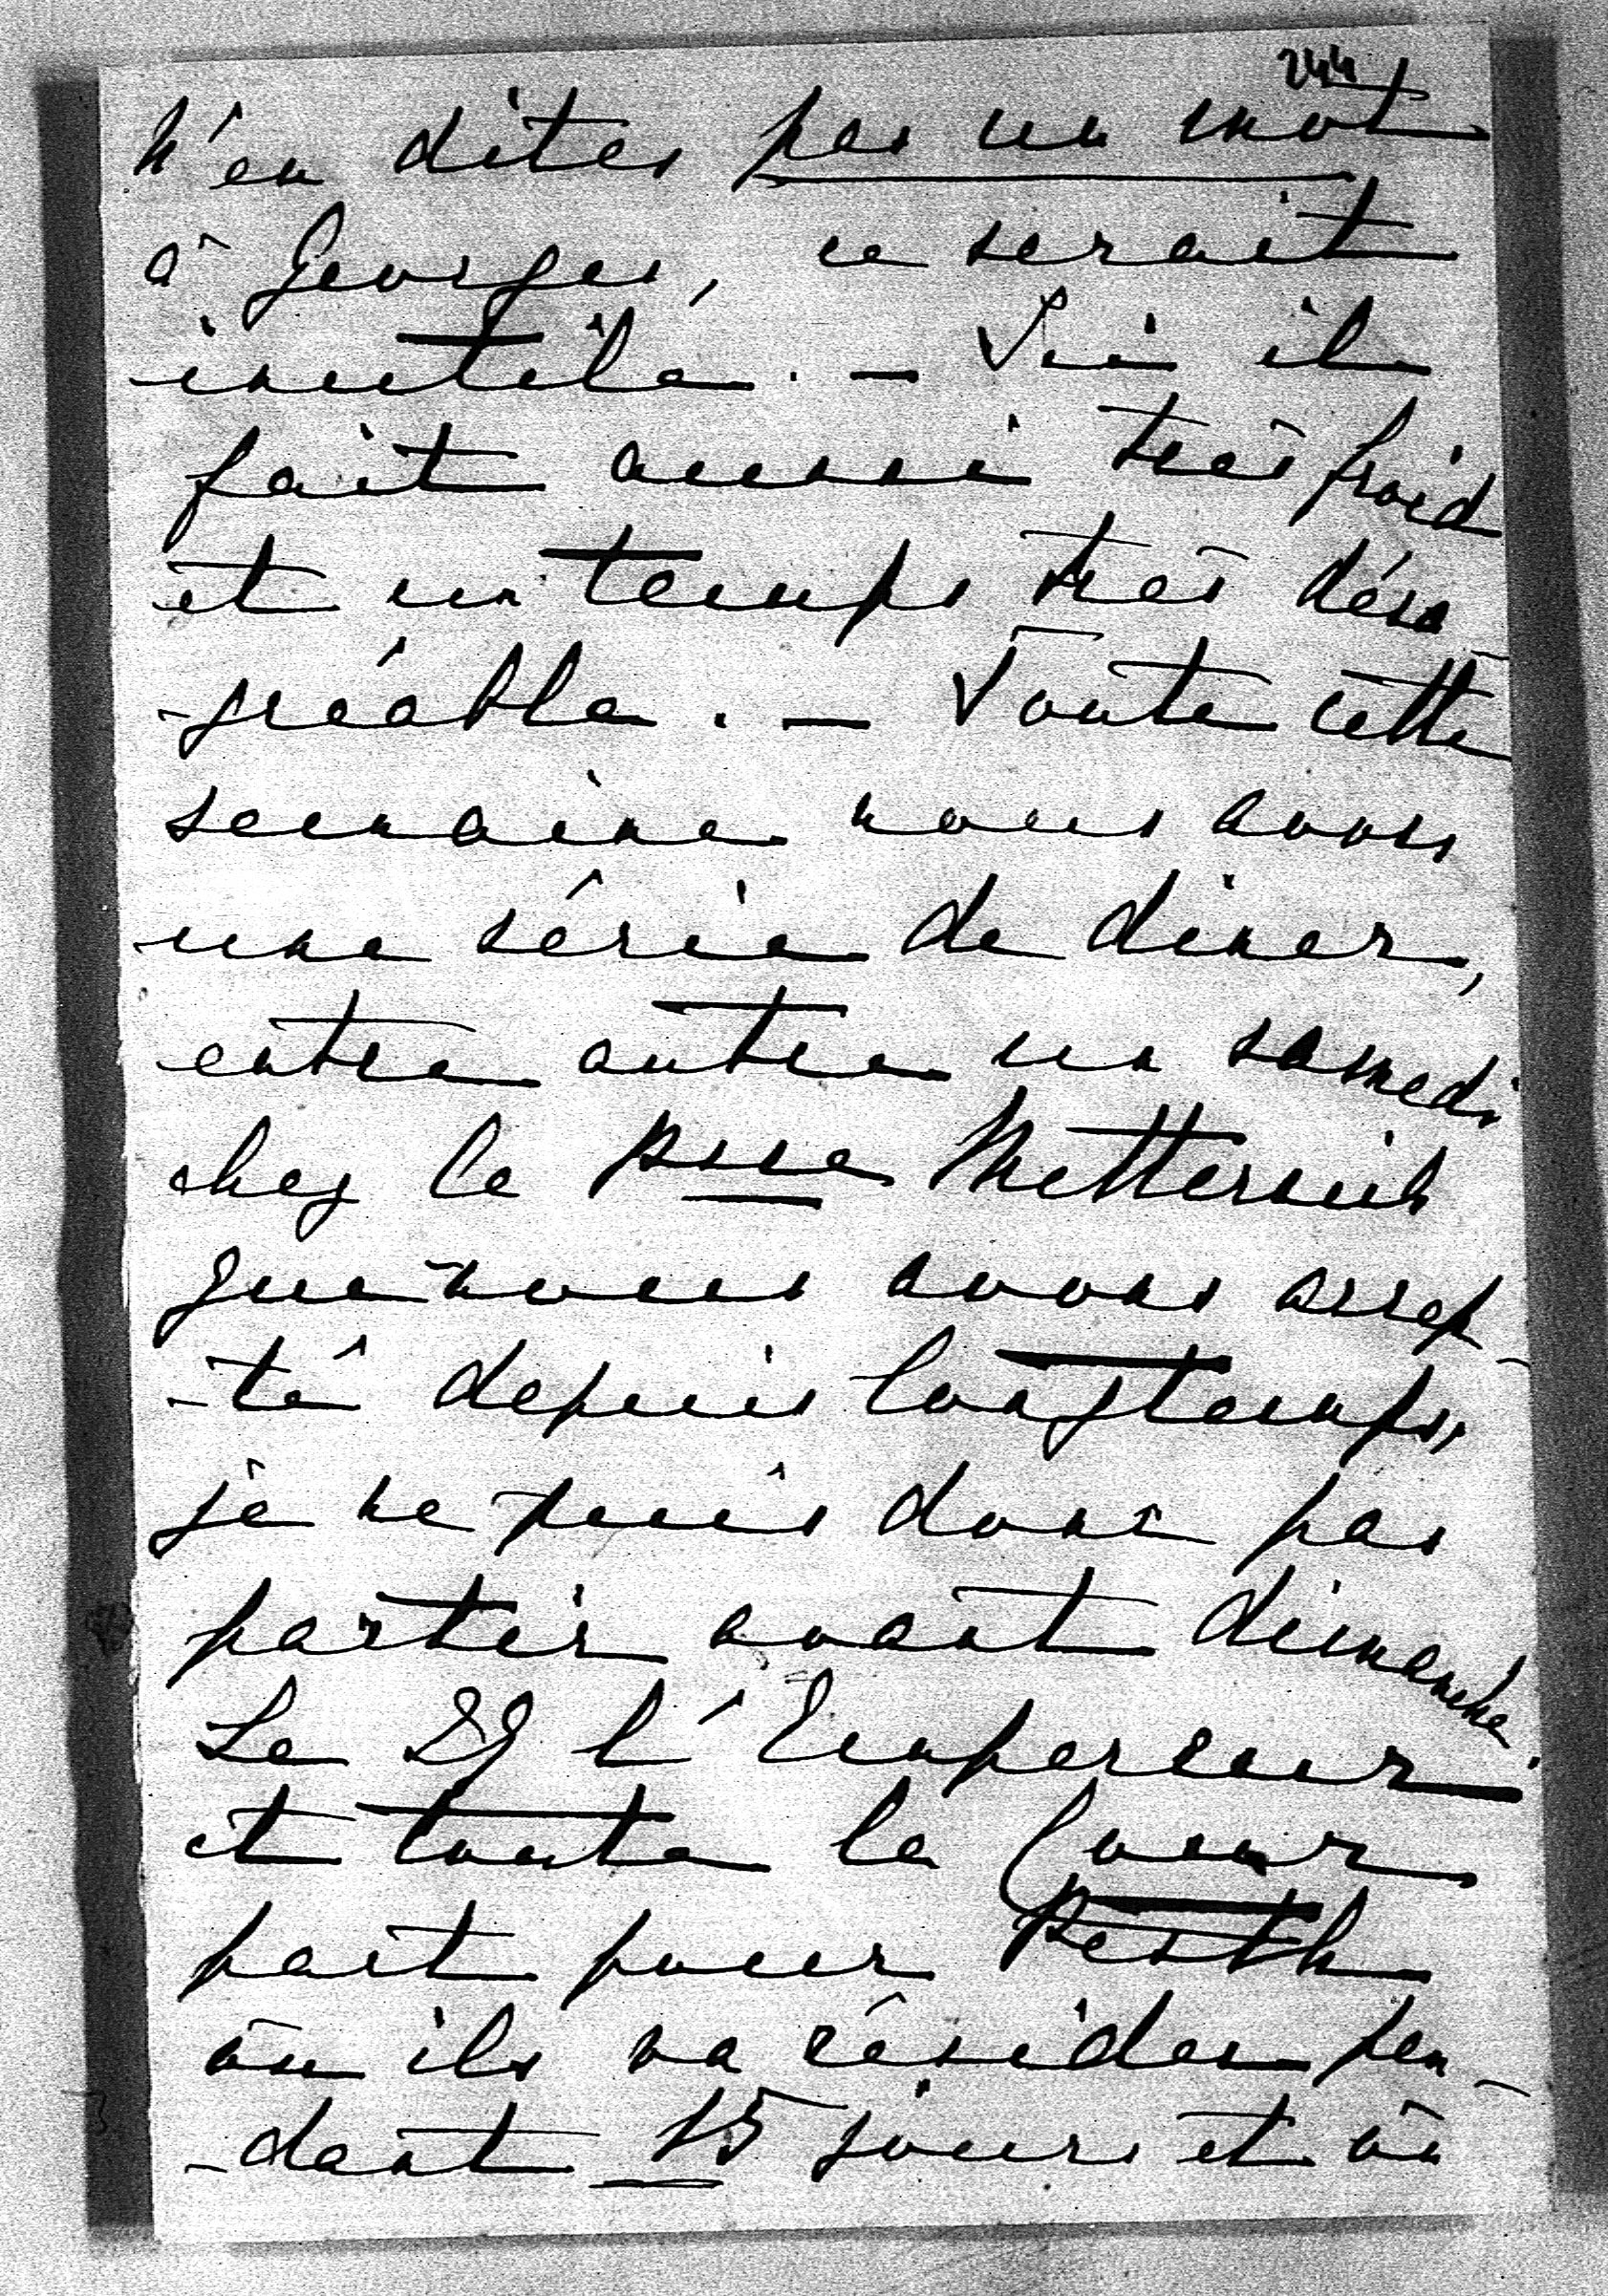 244
n'en dites pas un mot
à Georges, ce serait
inutile. — Ici il
fait aussi très froid
et un temps très désa
-gréable. — Toute cette
semaine nous avons
une série de diner,
entre autre un samedi
chez le Pce Metternich
que nous avons accep-
-té depuis longtemps,
je ne puis donc pas
partir avant dimanche.
Le 29 l'Empereur
et toute la Cour
part pour Pesth
ou ils va résider pen-
-dant 15 jours et ou